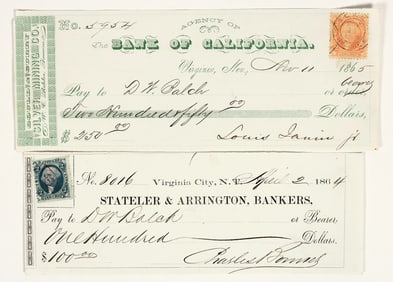 SILVER MINING CO.
No. 5954
AGENCY OF
The BANK OF CALIFORNIA.
Nov 11 1865
Pay to D W Balch or
Two Hundred & fifty 00 Dollars,
$ 250 00
Louis Janin Jr
No. 8016 Virginia City, N.T. April 2 1864
STATELER & ARRINGTON, BANKERS,
Pay to D W Balch or Bearer
One Hundred Dollars.
$100.00 Charles Bonner